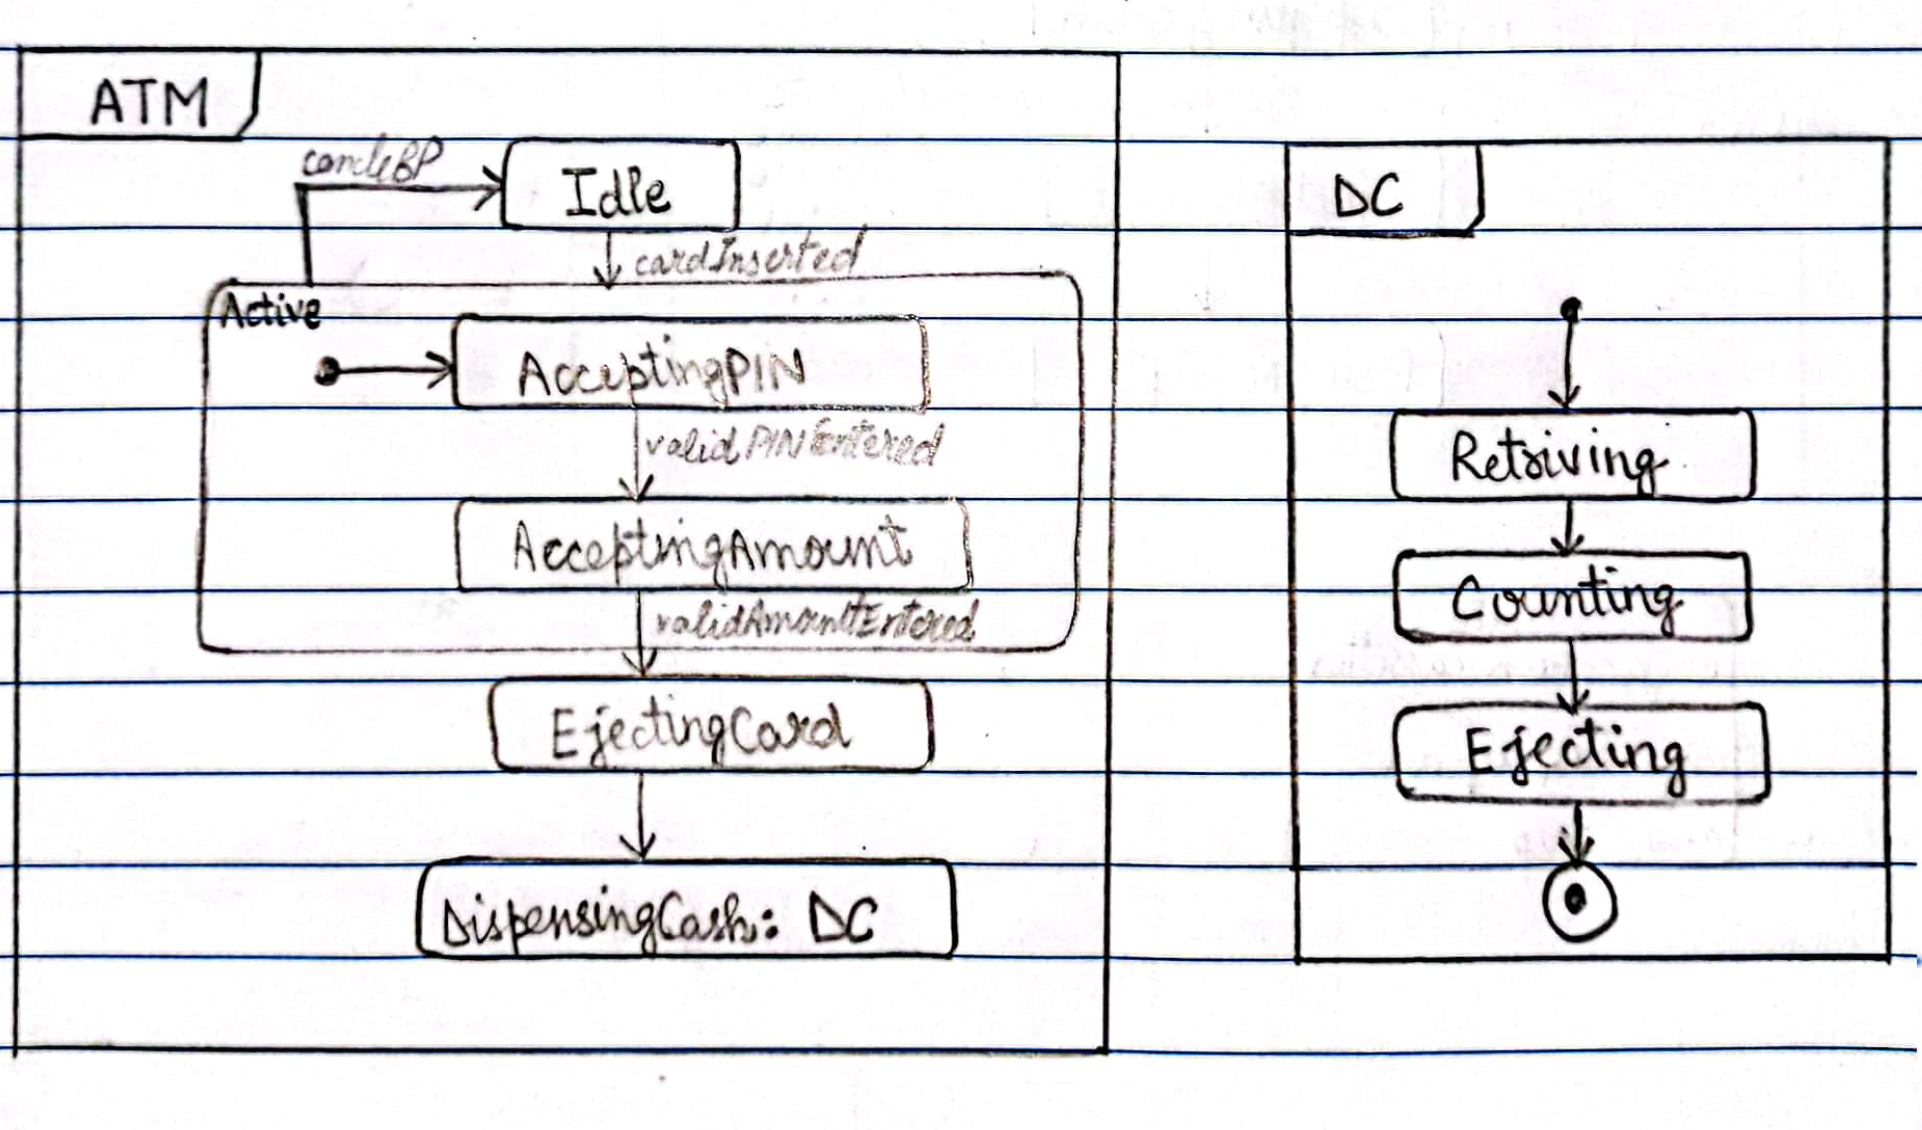 ATM
Idle
cardInserted
Active
AcceptingPIN
validPINEntered
AcceptingAmount
validAmountEntered
EjectingCard
DispensingCash: DC
DC
Retriving
Counting
Ejecting